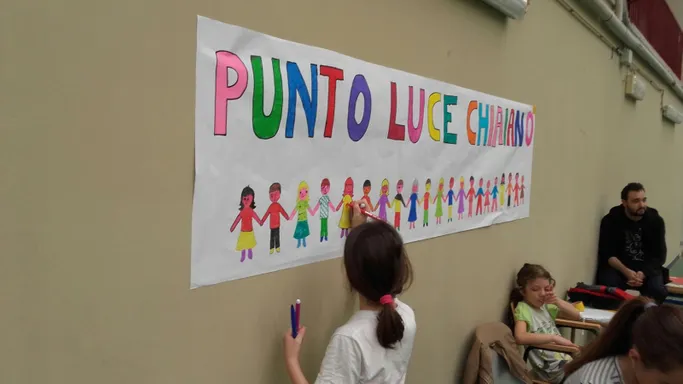 PUNTO LUCE CHIAIANO